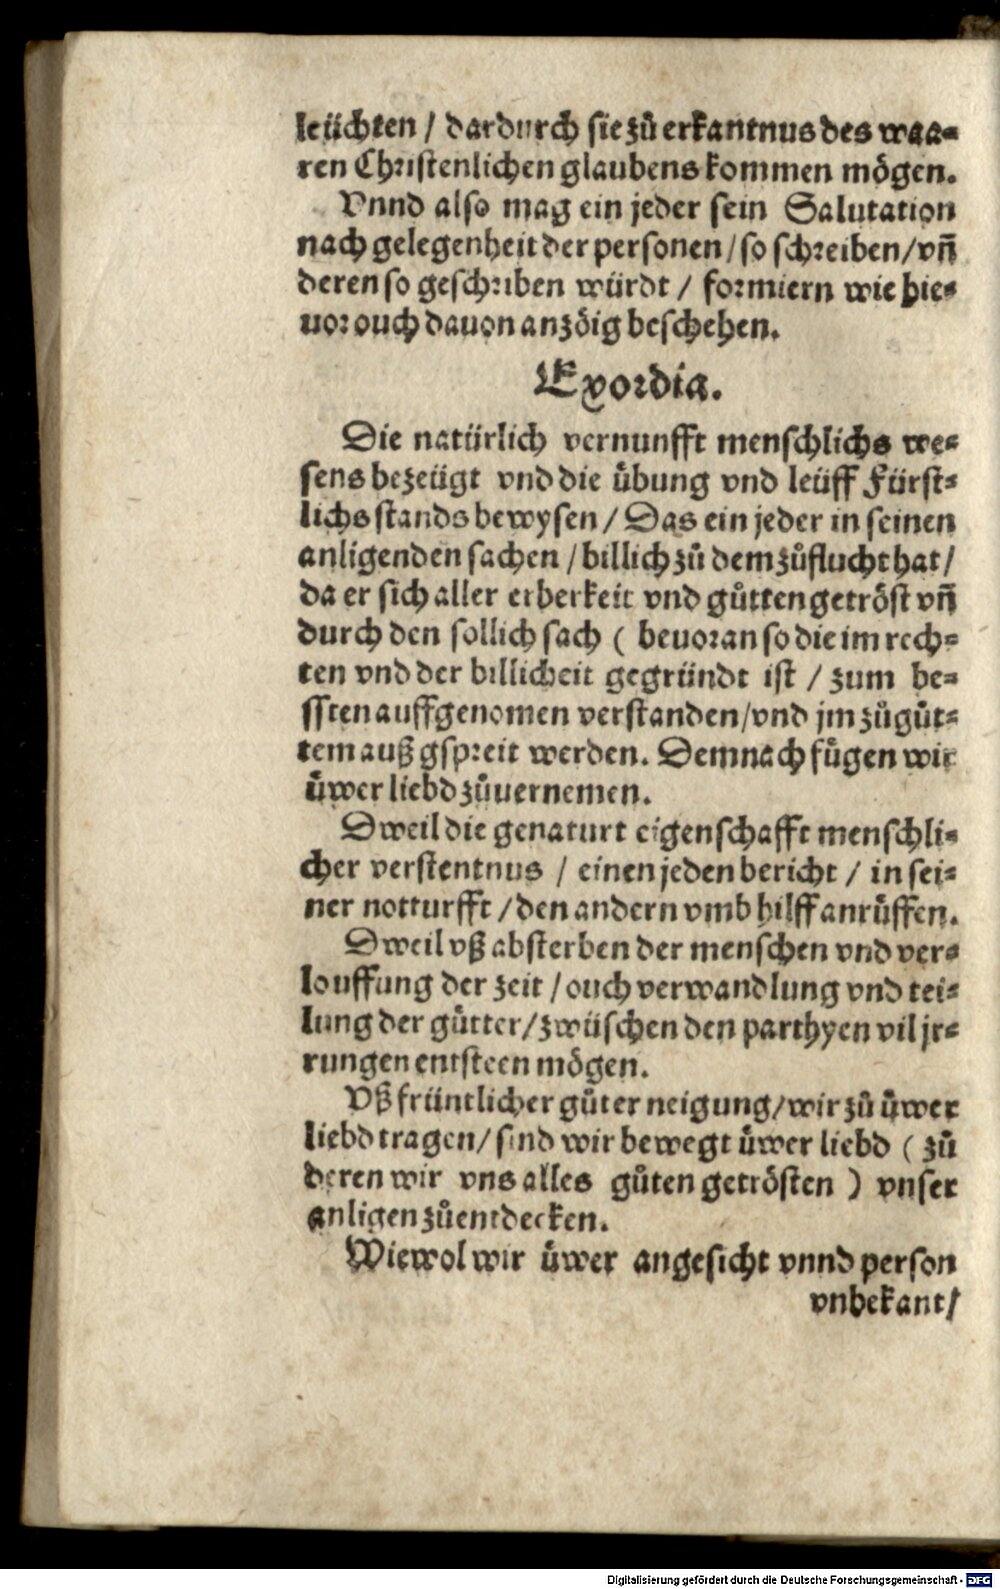 leüchten / dardurch sie zů erkantnus des waa⸗
ren Christenlichen glaubens kommen mögen.
Vnnd also mag ein jeder sein Salutation
nach gelegenheit der personen / so schreiben / vñ
deren so geschriben würdt / formiern wie hie⸗
uor ouch dauon anzöig beschehen.
Exordia.
Die natürlich vernunfft menschlichs we⸗
sens bezeügt vnd die übung vnd leüff Fürst⸗
lichs stands bewysen / Das ein jeder in seinen
anligenden sachen / billich zů dem zůflucht hat /
da er sich aller erberkeit vnd gůtten getröst vñ
durch den sollich sach ( beuoran so die im rech⸗
ten vnd der billicheit gegründt ist / zum be⸗
ssten auffgenomen verstanden / vnd jm zůgůt⸗
tem außgspreit werden. Demnach fůgen wir
üwer liebd zůuernemen.
Dweil die genaturt eigenschafft menschli⸗
cher verstentnus / einen jeden bericht / in sei⸗
ner notturfft / den andern vmb hilff anrüffen.
Dweil vß absterben der menschen vnd ver⸗
louffung der zeit / ouch verwandlung vnd tei⸗
lung der gůtter / zwüschen den parthyen vil jr⸗
rungen entsteen mögen.
Vß früntlicher gůter neigung / wir zů üwer
liebd tragen / sind wir bewegt üwer liebd ( zů
deren wir vns alles gůten getrösten ) vnser
anligen zůentdecken.
Wiewol wir üwer angesicht vnnd person
vnbekant /
Digitalisierung gefördert durch die Deutsche Forschungsgemeinschaft - DFG